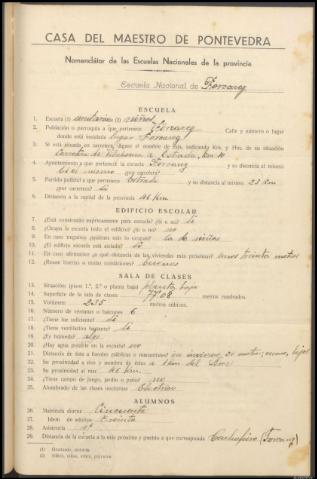 CASA DEL MAESTRO DE PONTEVEDRA
Nomenclátor de las Escuelas Nacionales de la provincia
Escuela Nacional de Forcarey
ESCUELA
1. Escuela (1) unitaria (2) niños
2. Población o parroquia a que pertenece Forcarey Calle y número o lugar
donde está instalada lugar Forcarey
3. Si está situada en carretera, dígase el nombre de ésta, indicando km. y Hm. de su situación
Carretera de a Estrada, km 10
4. Ayuntamiento a que pertenece la escuela Forcarey y su distancia al mismo
en el mismo
5. Partido judicial a que pertenece Estrada y su distancia al mismo 23 km
6. Distancia a la capital de la provincia 46 km
EDIFICIO ESCOLAR
7. ¿Está construido expresamente para escuela? (Sí o no) sí
8. ¿Ocupa la escuela todo el edificio? (Sí o no) no
9. En caso negativo ¿quiénes más lo ocupan? la de niñas
10. ¿El edificio escuela está aislado? sí
11. En caso afirmativo ¿a qué distancia de las viviendas más próximas? unos treinta metros
12. ¿Reúne buenas o malas condiciones? buenas
SALA DE CLASES
13. Situación (pisos 1.º, 2.º o planta baja) planta baja
14. Superficie de la sala de clases 77.02 metros cuadrados.
15. Volumen 235 metros cúbicos.
16. Número de ventanas o balcones 6
17. ¿Tiene luz suficiente? sí
18. ¿Tiene ventilación bastante? sí
19. ¿Es húmeda? algo
20. ¿Hay agua potable en la escuela? no
23. 46 km.
24. ¿Tiene campo de juego, jardín o patio? no
25. Alumbrado de las clases nocturnas Eléctrico
ALUMNOS
26. Matrícula diurna Cincuenta
27. Idem. de adultos Treinta
28. Asistencia
29. Distancia de la escuela a la más próxima y pueblo a que corresponde (Forcarey)
(1) Unitaria, mixta
(2) Niños, niñas, mixta, párvulos